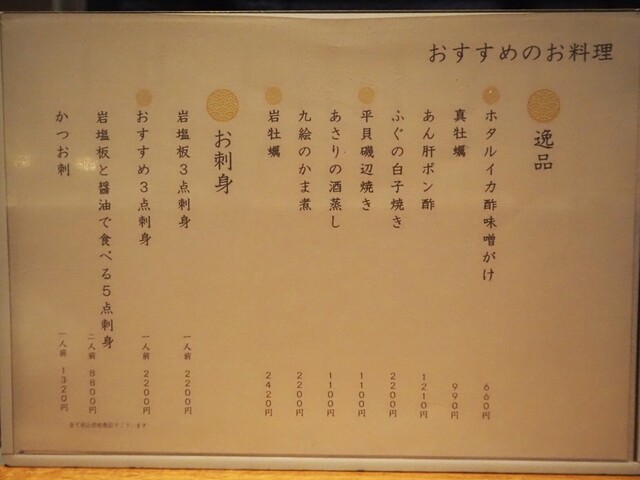 おすすめのお料理
逸品
ホタルイカ酢味噌がけ 660円
真牡蠣 990円
あん肝ポン酢 1210円
ふぐの白子焼き 2200円
平貝磯辺焼き 1100円
あさりの酒蒸し 1100円
九絵のかま煮 2200円
岩牡蠣 2420円
お刺身
岩塩板3点刺身 一人前 2200円
おすすめ3点刺身 一人前 2200円
岩塩板と醤油で食べる5点刺身 二人前 8800円
かつお刺 一人前 1320円